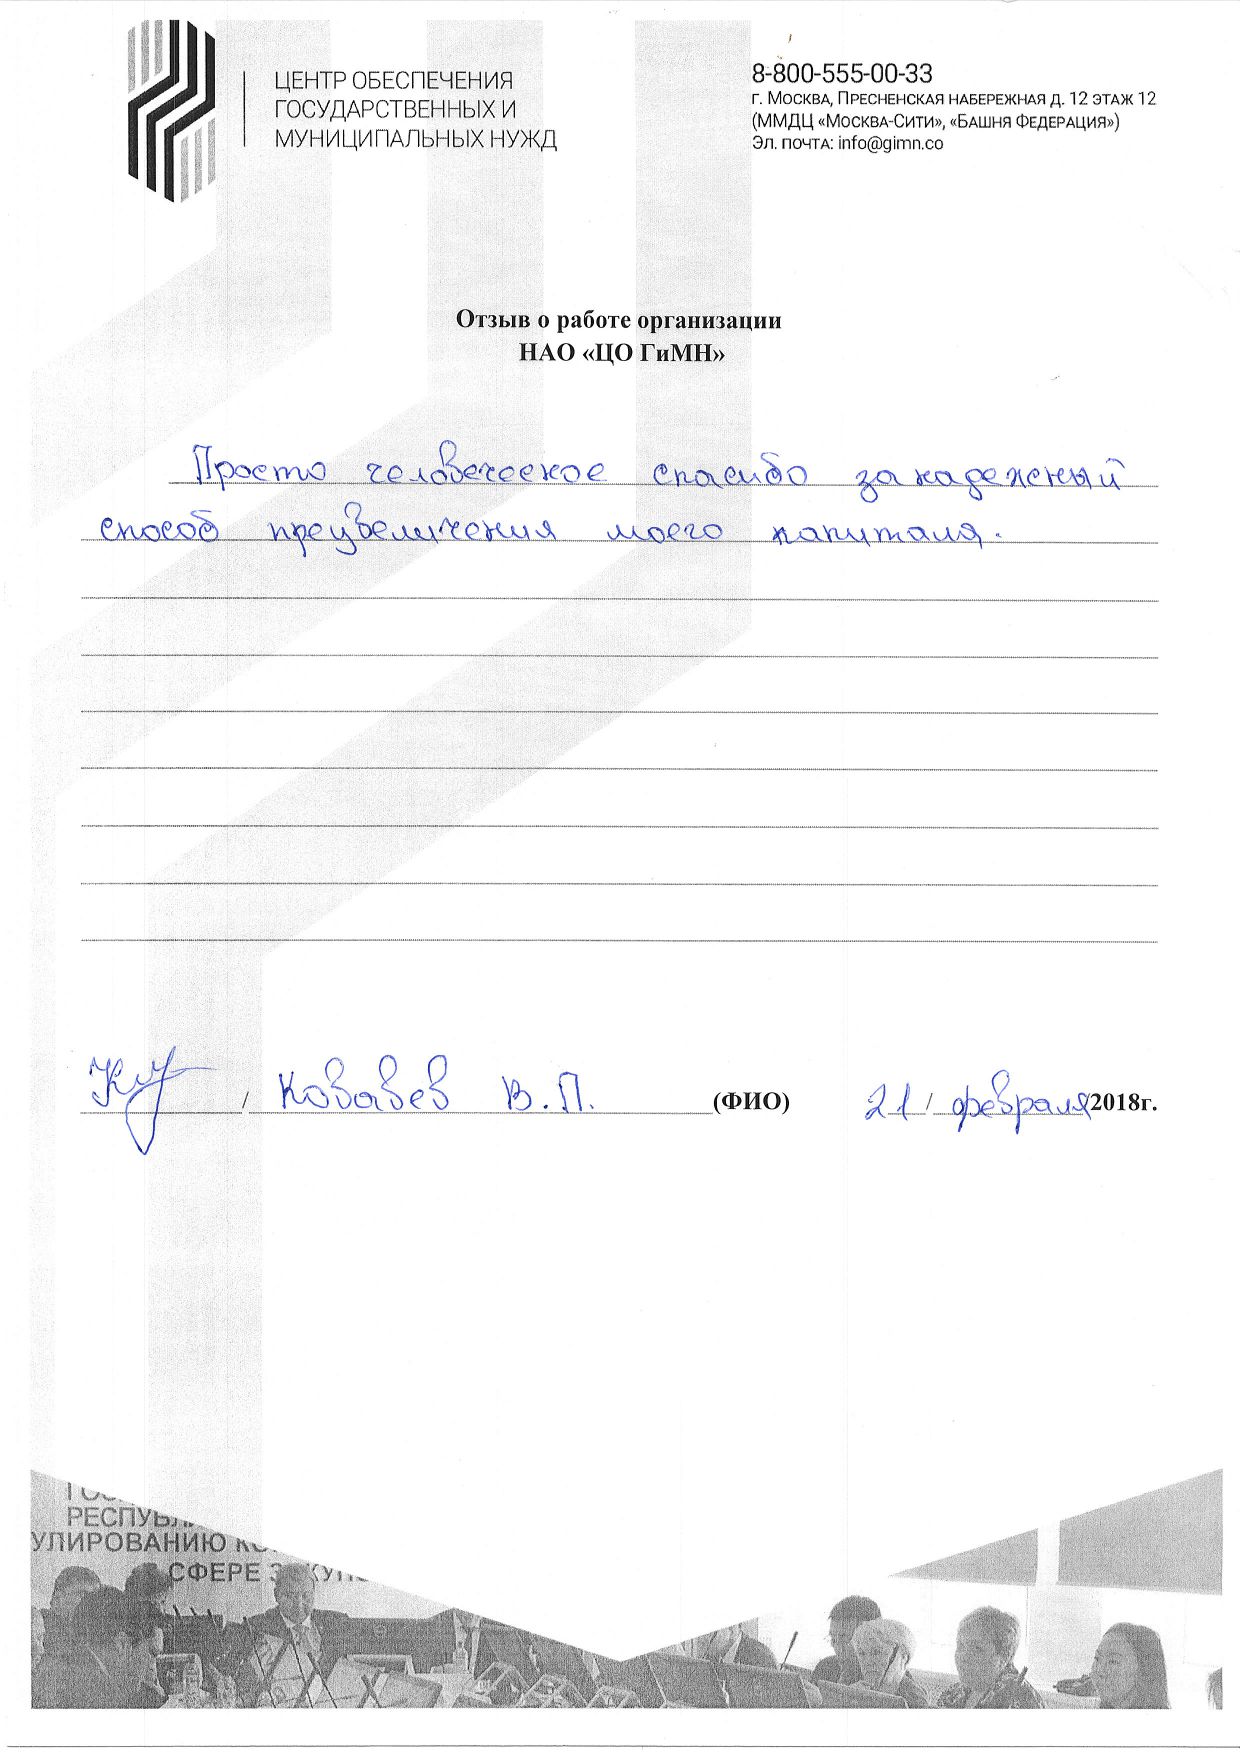 ЦЕНТР ОБЕСПЕЧЕНИЯ
ГОСУДАРСТВЕННЫХ И
МУНИЦИПАЛЬНЫХ НУЖД
8-800-555-00-33
г. Москва, Пресненская набережная д. 12 этаж 12
(ММДЦ «Москва-Сити», «Башня Федерация»)
Эл. почта: info@gimn.co
Отзыв о работе организации
НАО «ЦО ГиМН»
Просто человеческое спасибо за надежный
способ преувеличения моего капиталя.
/ Ковавев В.П. (ФИО) 21 / февраля 2018г.
РЕСПУБЛ
УЛИРОВАНИЮ КО
СФЕРЕ ЗАКУП